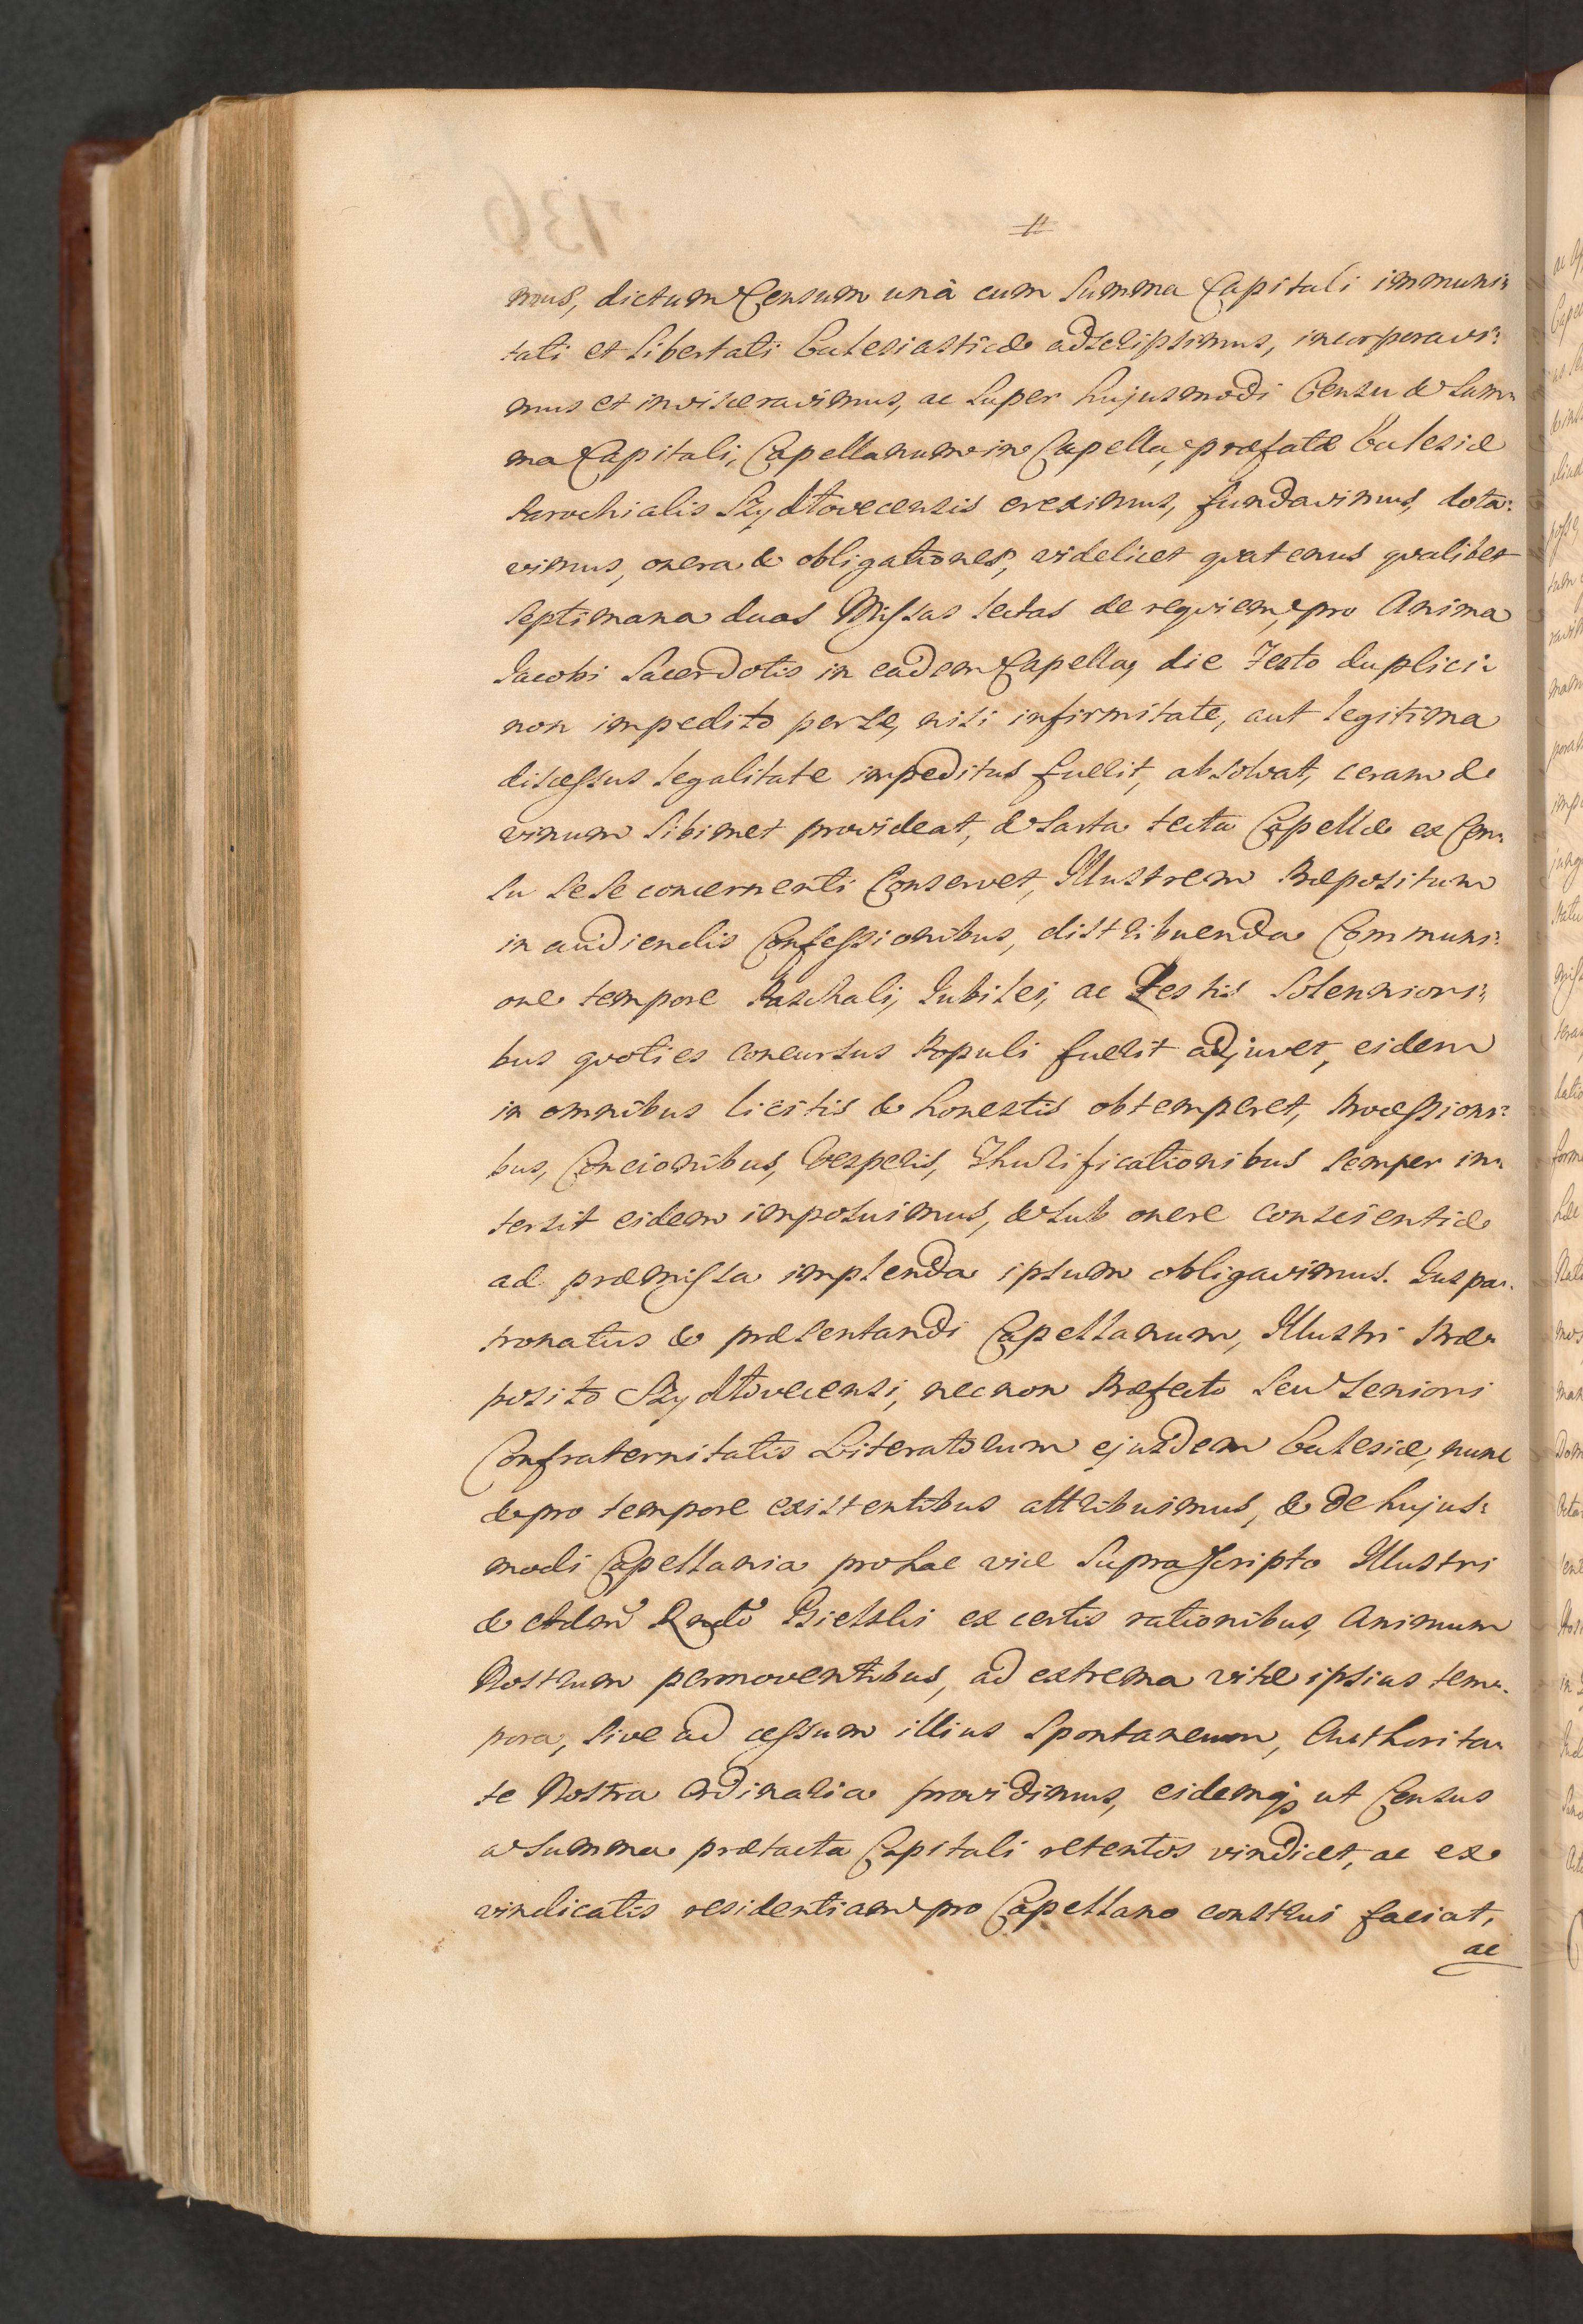 mus, dictum Censum unà cum Summa Capitali immuni:
tati et Libertati Ecclesiasticæ adscripsimus, incorporavi:
mus et invisceravimus, ac super hujusmodi Censu & Sum:
ma Capitali, Capellanum in Capella, præfatæ Ecclesiæ
Parochialis Szydłovecensis ereximus, fundavimus, dota:
vimus, onera & obligationes, videlicet qvatenus qvalibet
septimana duas Missas lectas de reqviem, pro Anima
Jacobi Sacerdotis in eadem Capella, die Festo duplici:
non impedito per se, nisi infirmitate, aut legitima
discessus legalitate impeditus fuerit, absolvat, ceram &
vinum sibimet provideat, & sarta tecta Capellæ ex Cen:
su sese concernenti Conservet, Illustrem Præpositum
in audiendis Confessionibus, distribuenda Communi:
one tempore Paschali, Jubilei, ac Festis Solennioni:
bus qvoties concursus Populi fuerit adjuvet, eidem
in omnibus licitis & honestis obtemperet, Processioni:
bus, Concionibus, Vesperis, Thurificationibus semper in:
tersit eidem imposuimus, & sub onere conscientiæ
ad præmissa implenda ipsum obligavimus. Jus pa:
tronatus & præsentandi Capellanum, Illustri Præ:
posito Szydłovecensi, necnon Præfecto seu Seniori
Confraternitatis Literatorum ejusdem Ecclesiæ, nunc
& pro tempore existentibus attribuimus, & de hujus:
modi Capellania pro hac vice Suprascripto Illustri
& Adm̃ Rndo Gielski ex certis rationibus, Animum
Nostrum permoventibus, ad extrema vitæ ipsius tem:
pora, sive ad cessum illius spontaneum, Authorita:
te Nostra Ordinaria providimus, eidemq3 ut Census
a Summa prætacta Capitali retentos vindicet, ac ex
vindicatis residentiam pro Capellano construi faciat,
ac